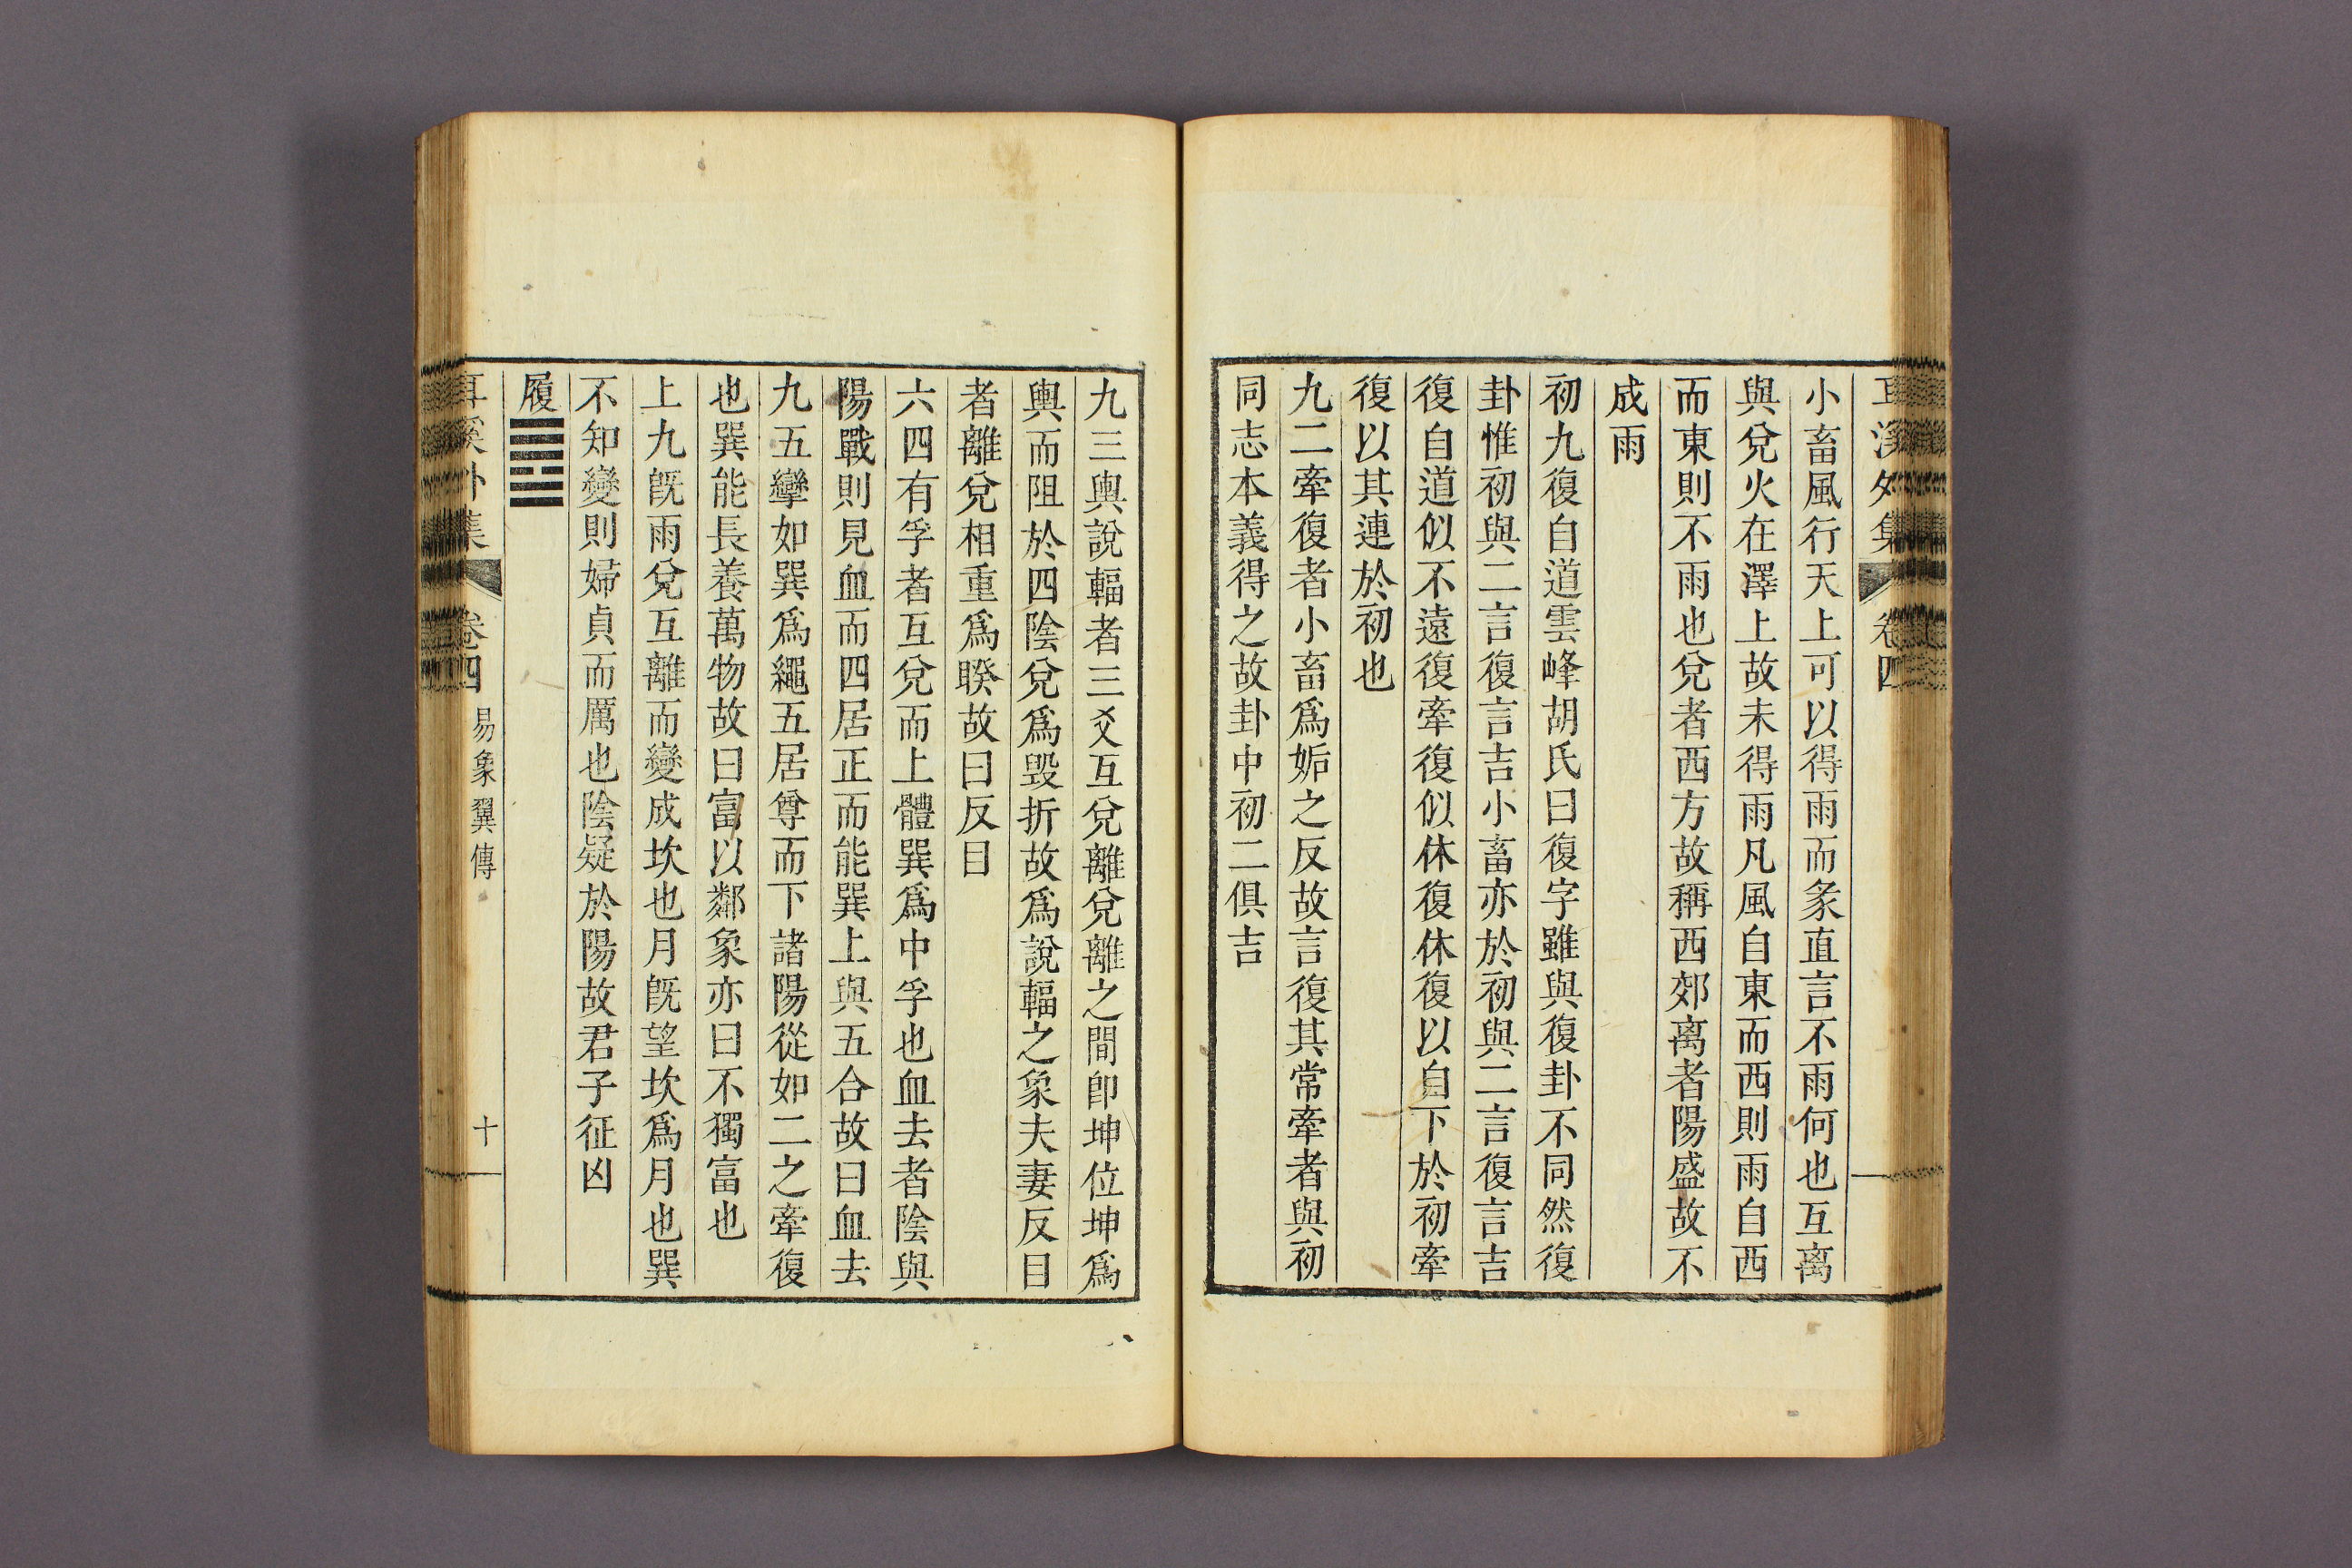 小畜風行天上可以得雨而彖直言不雨何也互离
與兌火在澤上故未得雨凡風自東而西則雨自西
而東則不雨也兌者西方故稱西郊离者陽盛故不
成雨
初九復自道雲峰胡氏曰復字雖與復卦不同然復
卦惟初與二言復言吉小畜亦於初與二言復言吉
復自道似不遠復牽復似休復休復以自下於初牽
復以其連於初也
九二牽復者小畜爲姤之反故言復其常牽者與初
同志本義得之故卦中初二俱吉
九三輿說輻者三爻互兌離兌離之間卽坤位坤爲
輿而阻於四陰兌爲毀折故爲說輻之象夫妻反目
者離兌相重爲睽故曰反目
六四有孚者互兌而上體巽爲中孚也血去者陰與
陽戰則見血而四居正而能巽上與五合故曰血去
九五攣如巽爲繩五居尊而下諸陽從如二之牽復
也巽能長養萬物故曰富以鄰象亦曰不獨富也
上九旣雨兌互離而變成坎也月旣望坎爲月也巽
不知變則婦貞而厲也陰疑於陽故君子征凶
履
集
卷四
易象翼傳
十